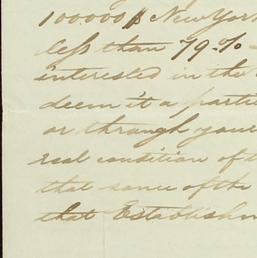 100.000 $ New York
less than 79.%
interested in the
deem it a partic
or through your
real condition of t
that some of the
that Establishm